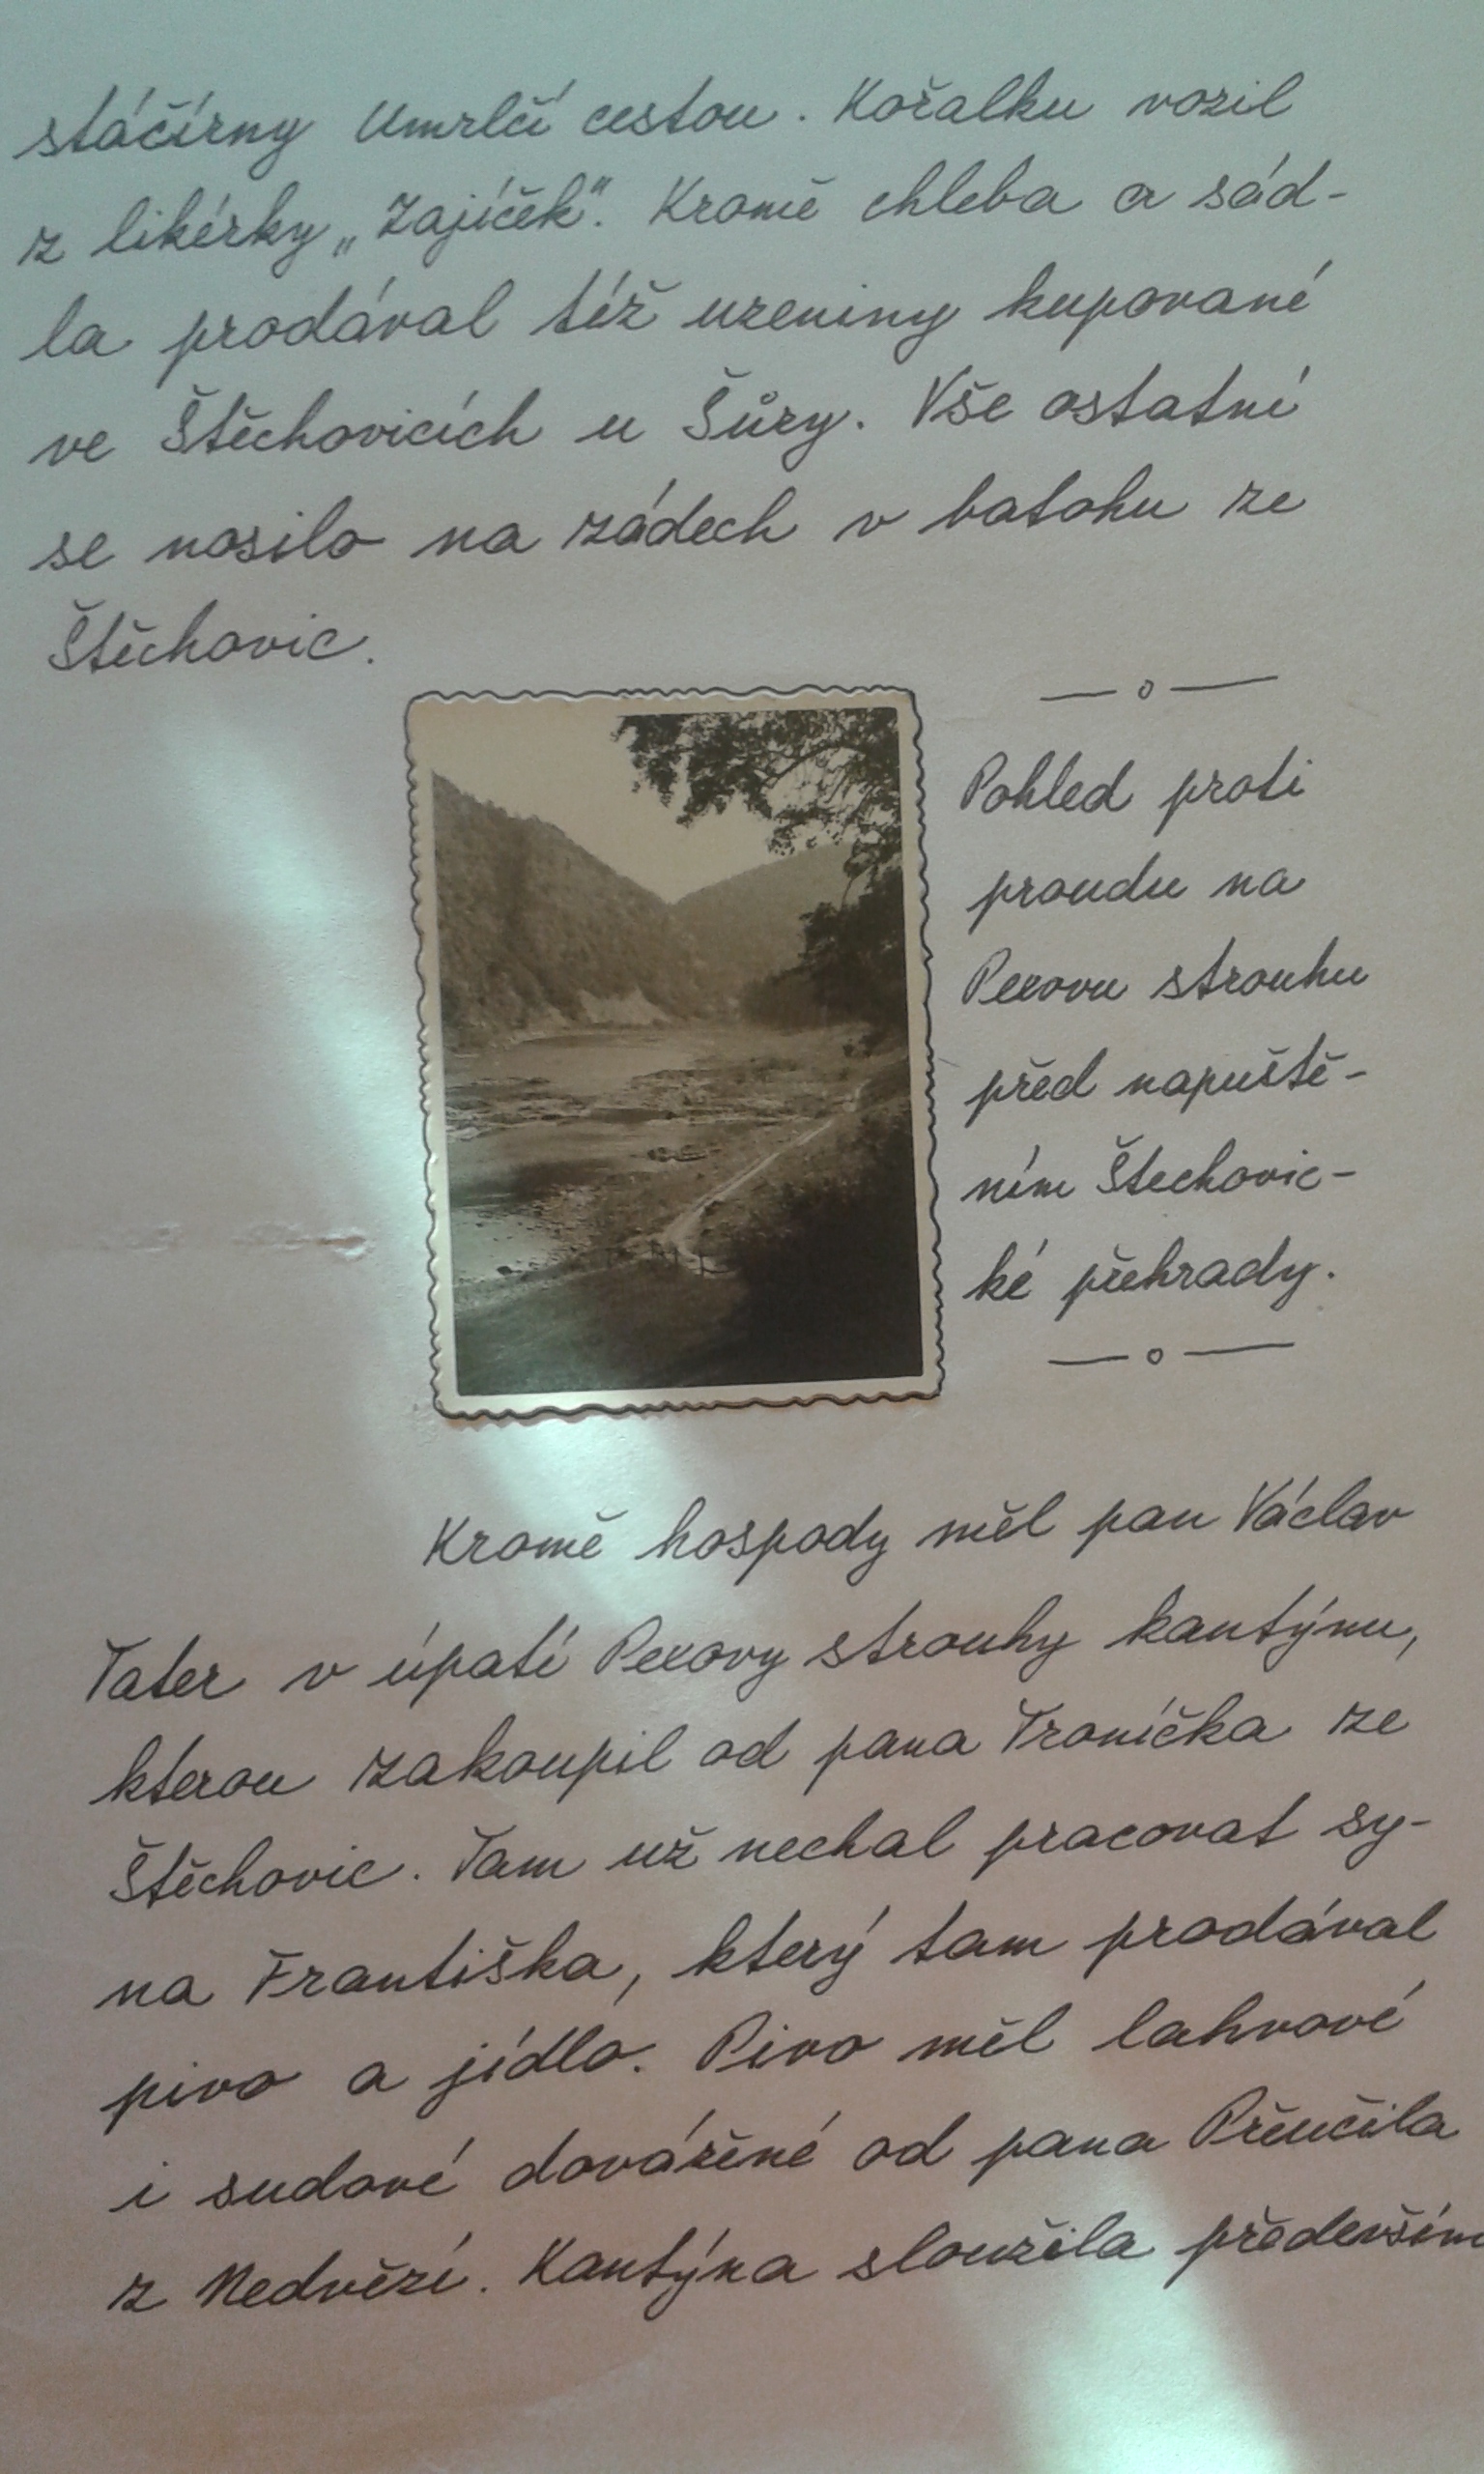 stáčírny Umrlčí cestou. Kořalku vozil
z likérky „Zajíček". Kromě chleba a sád-
la prodával též uzeniny kupované
ve Štěchovicích u Šůry. Vše ostatní
se nosilo na zádech v batohu ze
Štěchovic.
Pohled proti
proudu na
Pexovu strouhu
před napuště-
ním Štechovic-
ké přehrady.
Kromě hospody měl pan Václav
Tater v úpatí Pexovy strouhy kantýnu,
kterou zakoupil od pana Troníčka ze
Štěchovic. Tam už nechal pracovat sy-
na Františka, který tam prodával
pivo a jídlo. Pivo měl lahvové
i sudové dovážené od pana Přeučila
z Nedvězí. Kantýna sloužila především